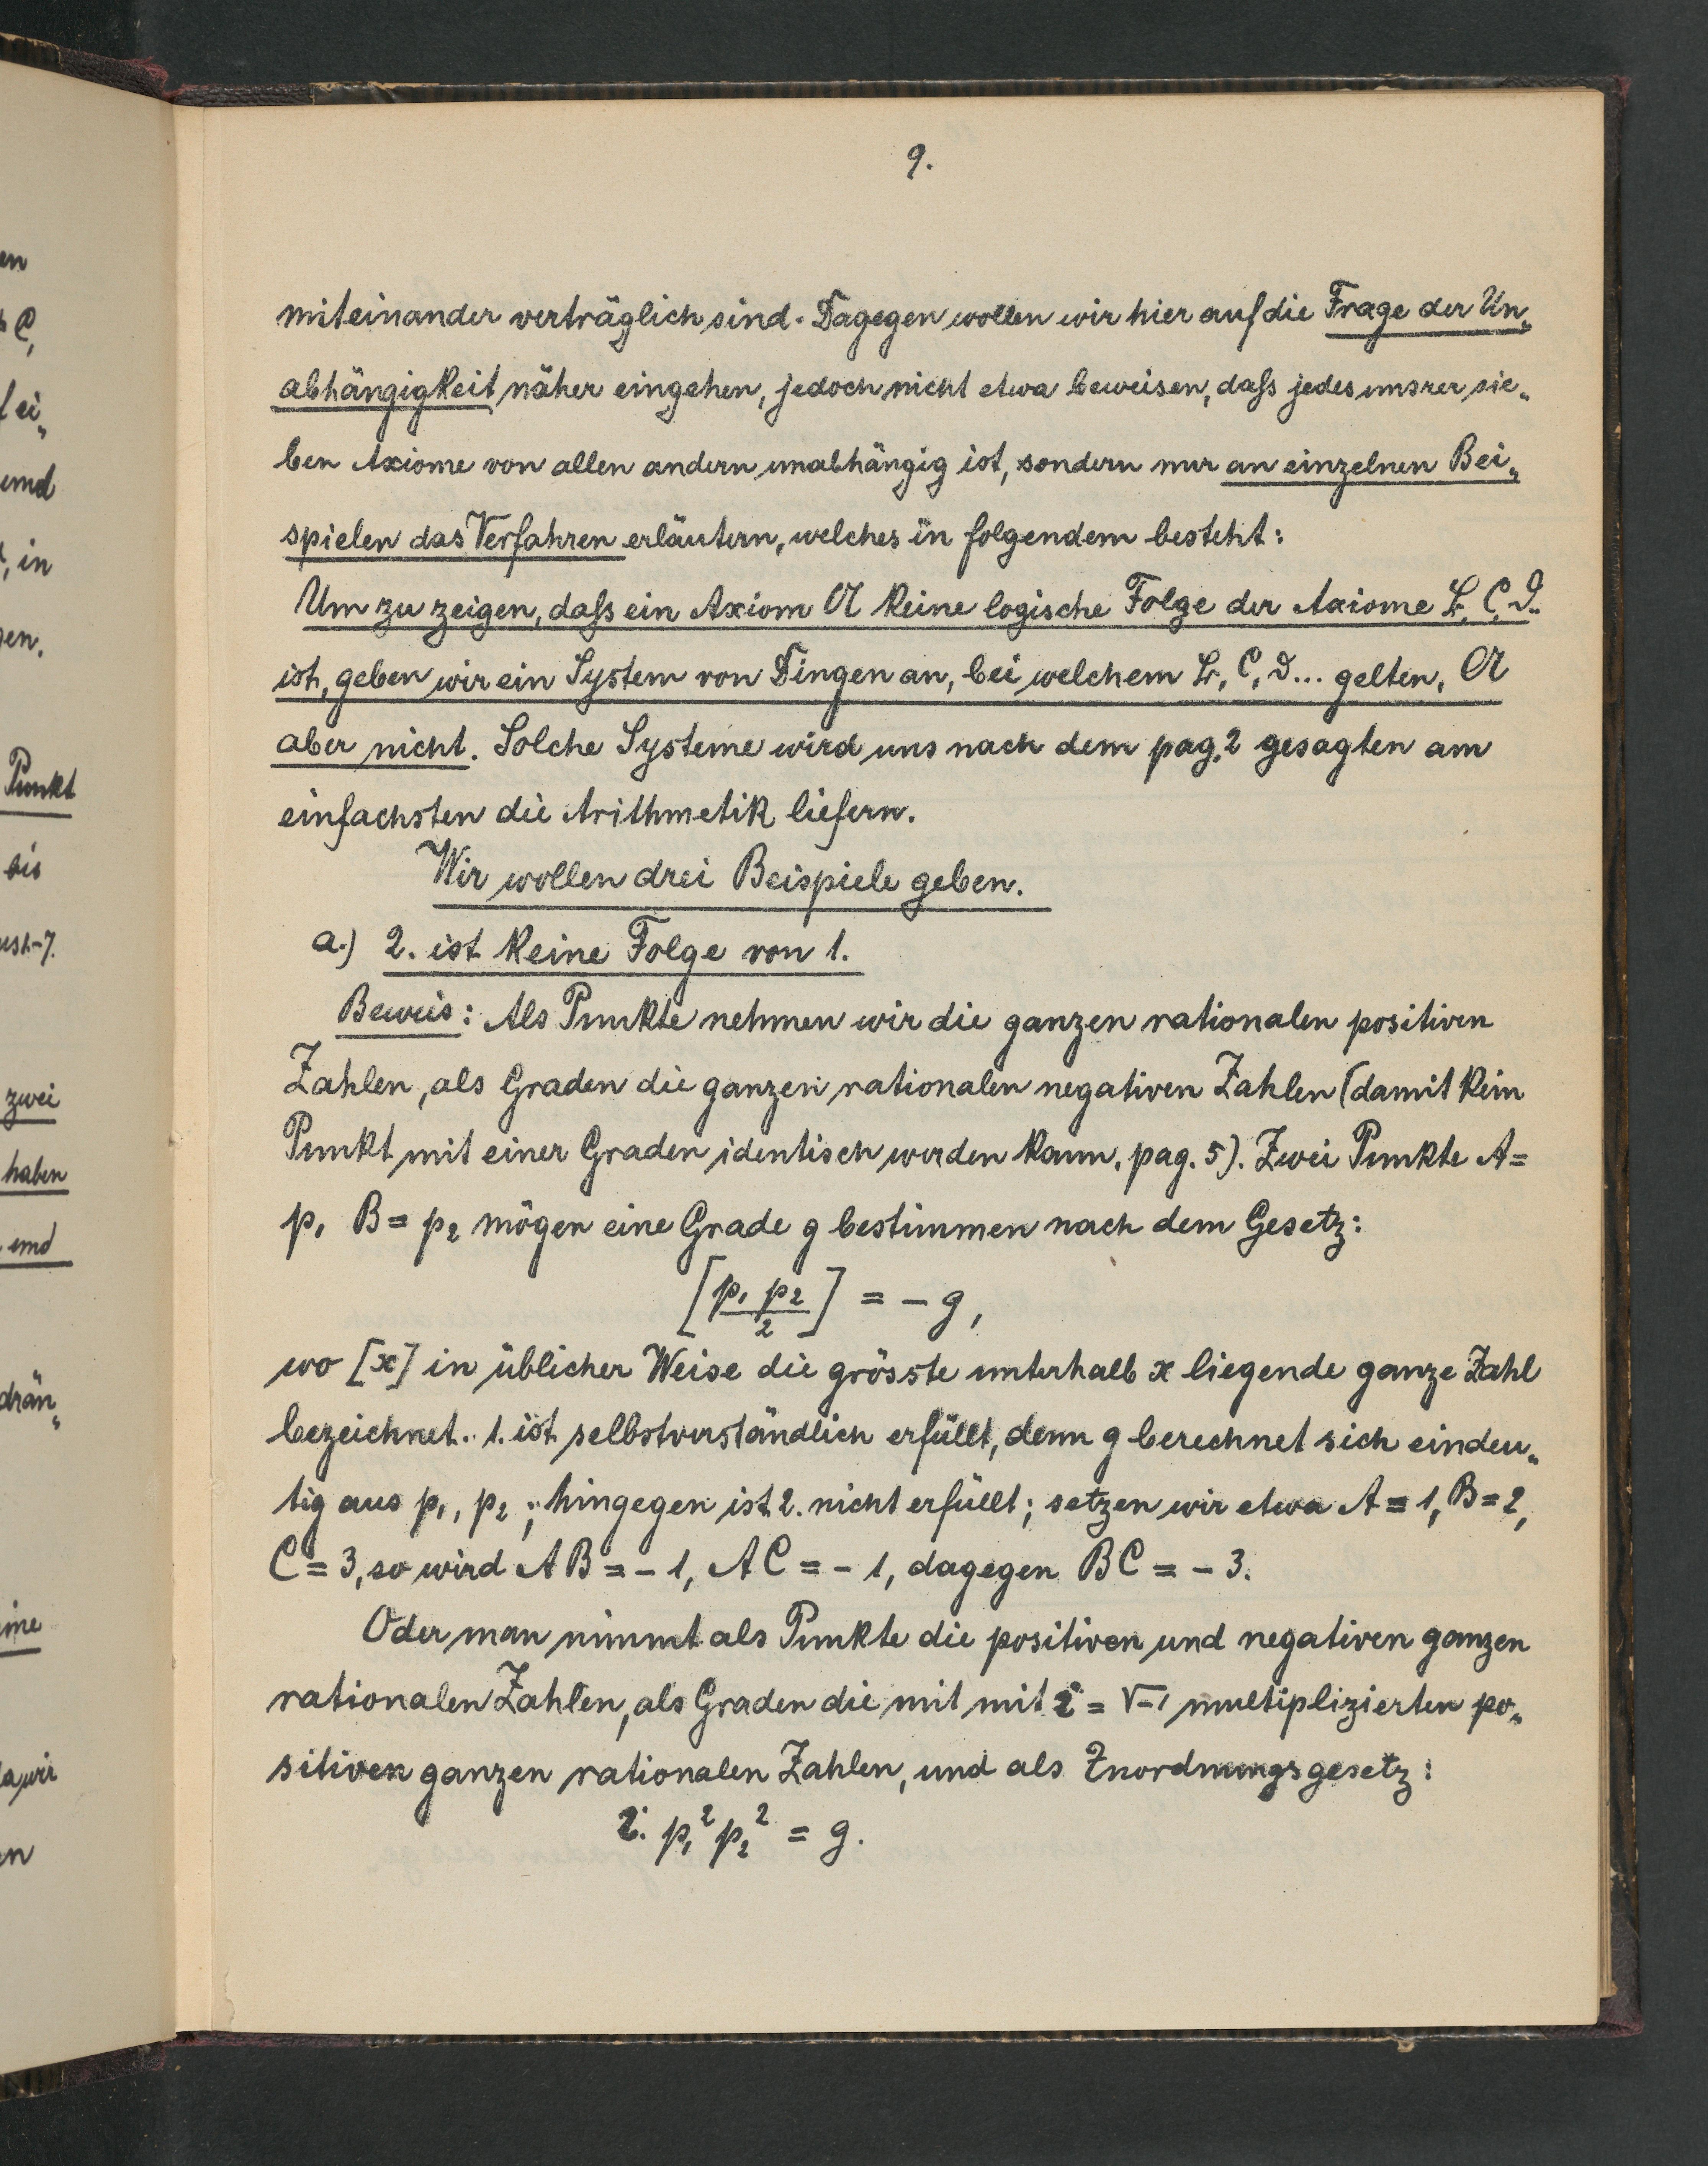 9.
miteinander verträglich sind. Dagegen wollen wir hier auf die Frage der Un„
abhängigkeit näher eingehen, jedoch nicht etwa beweisen, daſs jedes unsrer sie„
ben Axiome von allen andern unabhängig ist, sondern nur an einzelnen Bei„
spielen das Verfahren erläutern, welches in folgendem besteht:
Um zu zeigen, daſs ein Axiom A keine logische Folge der Axiome B, C, D..
ist, geben wir ein System von Dingen an, bei welchem B, C, D... gelten, A
aber nicht. Solche Systeme wird uns nach dem pag. 2 gesagten am
einfachsten die Arithmetik liefern.
Wir wollen drei Beispiele geben.
a.) 2. ist keine Folge von 1.
Beweis: Als Punkte nehmen wir die ganzen rationalen positiven
Zahlen, als Graden die ganzen rationalen negativen Zahlen (damit kein
Punkt mit einer Graden identisch werden kann, pag. 5). Zwei Punkte A=
p₁ B = p₂ mögen eine Grade g bestimmen nach dem Gesetz:
[p₁ p₂ / 2] = - g,
wo [x] in üblicher Weise die grösste unterhalb x liegende ganze Zahl
bezeichnet. 1. ist selbstverständlich erfüllt, denn g berechnet sich eindeu„
tig aus p₁, p₂; hingegen ist 2. nicht erfüllt; setzen wir etwa A = 1, B = 2,
C = 3, so wird AB = - 1, AC = - 1, dagegen BC = - 3.
Oder man nimmt als Punkte die positiven und negativen ganzen
rationalen Zahlen, als Graden die mit mit i = √-1 multiplizierten po„
sitiven ganzen rationalen Zahlen, und als Zuordnungsgesetz:
i. p₁² p₂² = g.